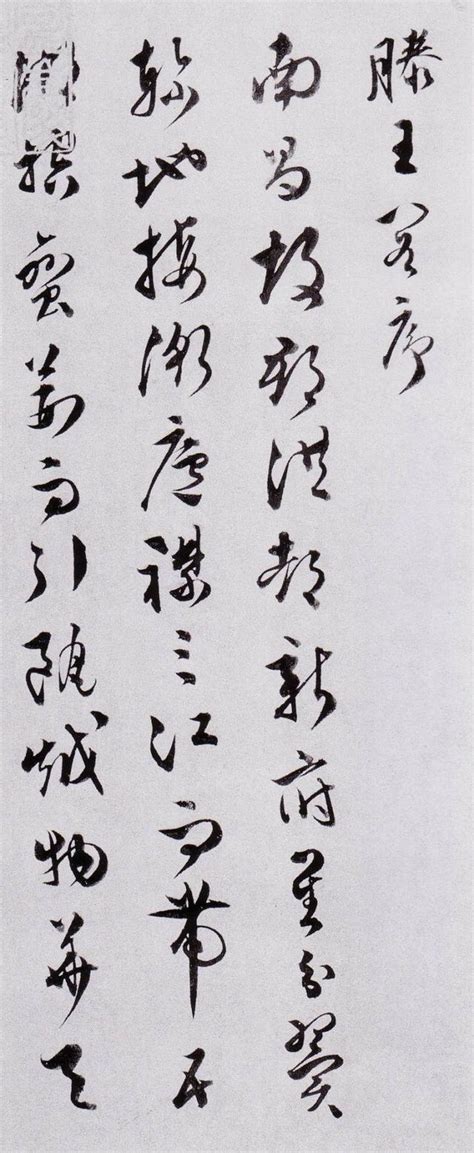 滕王閣序
南昌故郡洪都新府星分翼
軫地接衡廬襟三江而帶五
湖控蠻荊而引甌越物華天